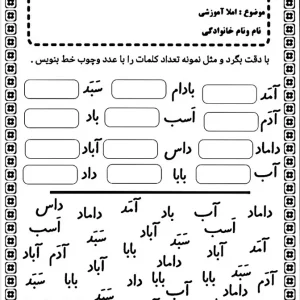 موضوع : املا آموزشی
نام ونام خانوادگی
با دقت بگرد و مثل نمونه تعداد کلمات را با عدد وچوب خط بنویس .
آمَد بادام سَبَد
آدَم اَسب باد
داماد داس آباد
آب بابا داد
داماد آب باد آمَد داماد داس
اَسب آباد سَبَد آباد سَبَد اَسب
آمَد داماد بابا سَبَد آدَم آباد
سَبَد باد داد بابا آباد بابا سَبَد
آدَم داماد آب سَبَد